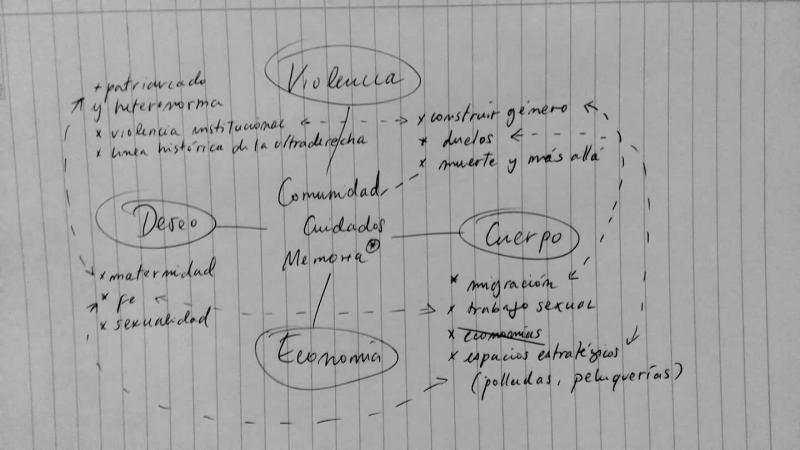 Violencia
+ patriarcado
y heteronorma
* violencia institucional
* línea histórica de la ultraderecha
* construir género
* duelos
* muerte y más allá
Comunidad
Cuidados
Memoria *
Deseo
Cuerpo
* maternidad
* fe
* sexualidad
* migración
* trabajo sexual
* economías
* espacios estratégicos
(polladas, peluquerías)
Economía